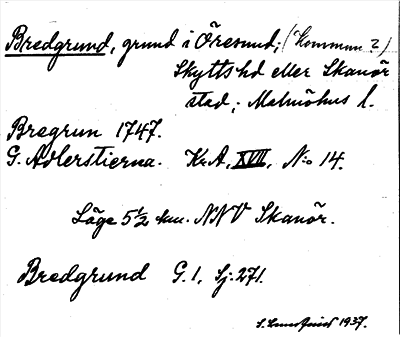 Bredgrund, grund i Öresund; (Kommun ?)
Skytts hd eller Skanör
stad; Malmöhus l.
Bregrun 1747.
G. Adlerstierna. Kr.A. XVII, N:o 14.
Läge 5½ km. NNV Skanör.
Bredgrund G. 1, Sj. 271.
1937.